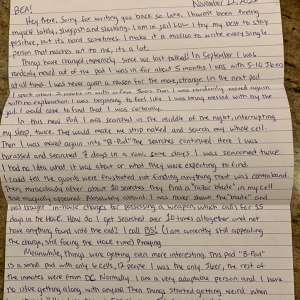 November 12, 2020
BEN!
Hey there. Sorry for writing you back so late, I haven't been feeling
myself lately, sluggish and slacking. I am in jail lol - I try my best to stay
positive, but it's hard sometimes. I make it a motto to write every single
person that reaches out to me, it's a lot.
Things have changed immensely since we last talked! In September I was
randomly moved out of the pod I was in for about 5 months. I was with 5-10
at all times. I was never given a reason for the move, strange. In the next pod
I spent about 2 months in with other. Then I was randomly moved again
with no explanation. I was beginning to feel like I was being messed with by the
jail. I would come to find that I was certainly.
In this new Pod I was searched in the middle of the night, interrupting
my sleep, twice. They would make me strip naked and search my whole cell.
Then I was moved again into "B-Pod". The searches continued there. I was
harassed and searched 7 days in a row, some days I was searched twice.
I had no idea what it was about or what they were expecting to find.
I could tell the guards were frustrated not finding anything that was contraband.
Then, miraculously after about 30 searches they find a "razor blade" in my cell
that magically appeared. Absolutely absurd. I was never shown the "blade" and
was brought institute charges for possessing a weapon which calls for 35
days in the Hole. How do I get searched over 10 times altogether and not
have anything found until the end? I call BS! (I am currently still appealing
the charge, still facing the Hole time) Praying.
Meanwhile, things were getting even more interesting. This pod "B-Pod"
is a small pod with only 6 cells, 12 people. I was the only 5iver, the rest of
the inmates were from DC. Normally I am a very adaptive person and I have
no issue getting along with anyone. Then things started getting weird when